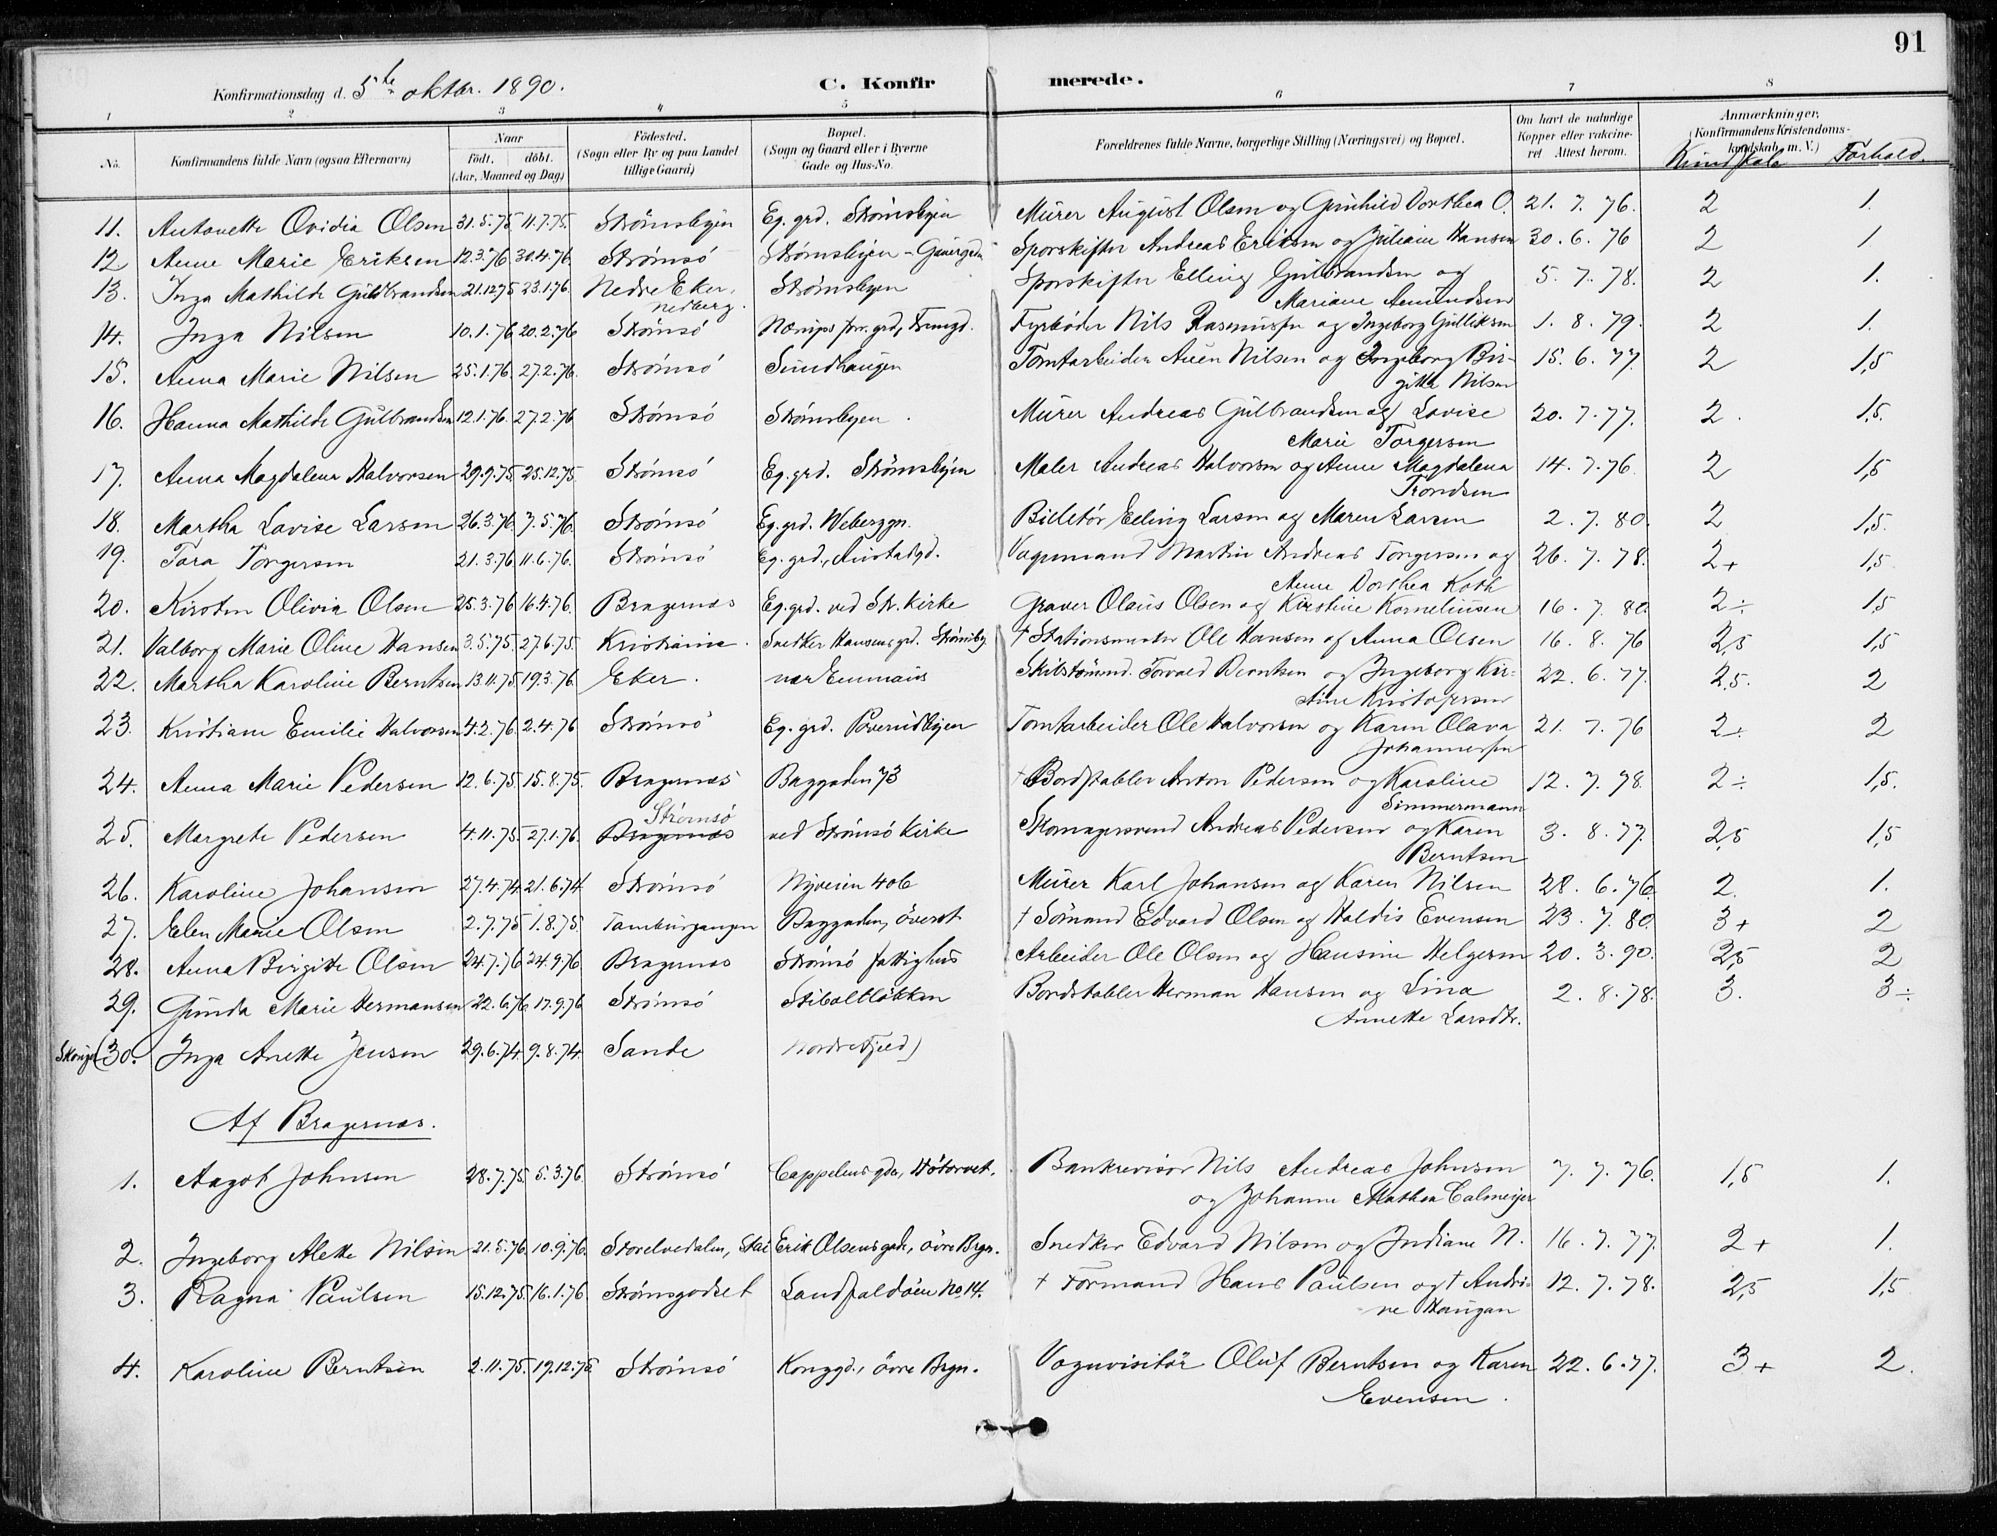 91
Konfirmationsdag d. 5te oktbr. 1890. C. Konfirmerede.
1 2 3 4 5 6 7 8
No. Konfirmandens fulde Navn (ogsaa Efternavn) Naar Født. døbt. (Aar, Maaned og Dag) Fødested. (Sogn eller By og paa Landet tillige Gaard) Bopæl. (Sogn og Gaard eller i Byerne Gade og Hus-No. Forældrenes fulde Navne, borgerlige Stilling (Næringsvei) og Bopæl. Om havt de naturlige Kopper eller vakcineret Attest herom. Anmærkninger, (Konfirmandens Kristendomskundskab m. V.) Kundskab Forhold.
11. Antonette Ovidia Olsen 31.5.75 11.7.75. Strømsbyen Eg. grd. Strømsbyen Murer August Olsen og Gunhild Dorthea O. 21. 7. 76. 2 1.
12 Anne Marie Eriksen 12.3.76 30.4.76. Strømsø Strømsbyen Sporskifter Andreas Eriksen og Juliane Hansen 30. 6. 76 2 1
13. Inga Mathilde Guldbrandsen 21.12.75 23.1.76. Nedre Eker, Sporskifter Elling Gulbrandsen og 5. 7. 78. 2 1.
Nedberg. Strømsbyen Mariane Amundsen
14. Inga Nilsen 10.1.76 20.2.76 Strømsø Fyrbøder Nils Rasmussen og Ingeborg Gulliksen 1. 8. 79. 2 1.
15. Anna Marie Nilsen 25.1.76. 27.2.76. Strømsø Sundhaugen Tomtarbeider Auen Nilsen og Ingeborg Bir- 15. 6. 77. 2 1,5
gitte Nilsen
16. Hanna Mathilde Gulbrandsen 12.1.76. 27.2.76 Strømsø Strømsbyen. Murer Andreas Gulbrandsen og Lovise 20. 7. 77. 2. 1,5.
Marie Torgersen
17. Anna Magdalena Halvorsen 29.9.75 25.12.75. Strømsø Eg. grd. Strømsbyen Maler Andreas Halvorsen og Anne Magdalena 14. 7. 76. 2 1,5
Trondsen
18. Martha Lovise Larsen 26.3.76 7.5.76. Strømsø Eg. grd. Weberggn. Billetør Elling Larsen og Maren Larsen 2. 7. 80. 2 1,5.
19. Tora Torgersen 21.3.76 11.6.76. Strømsø Eg. grd., Vognmand Martin Andreas Torgersen og 26. 7. 78. 2+ 1,5.
Anne Dorthea Roth
20. Kirsten Olivia Olsen 25.3.76 16.4.76. Bragernæs Eg. grd. ved Str. Kirke Graver Olaus Olsen og Kirstine Korneliusen 16. 7. 80. 2÷ 1,5
21. Valborg Marie Oline Hansen 3.5.75 27.6.75. Kristiania. Snedker Hansens grd. Strømsby. † Stationsmester Ole Hansen og Anna Olsen 16. 8. 76 2,5 1,5
22. Martha Karoline Berntsen 13.11.75 19.3.76. Eker. nær Emmaus Skilstømmd. Torvald Berntsen og Ingeborg Kir- 22. 6. 77. 2,5. 2
stine Kristofersen
23. Kristiane Emilie Halvorsen 4.2.76. 2.4.76 Strømsø Eg. grd. Poverudbyen Tomtarbeider Ole Halvorsen og Karen Olava 21. 7. 76 2÷ 2
Johannessen
24. Anna Marie Pedersen 12.6.75 15.8.75. Bragernæs Baggaden 73 † Bordstabler Anton Pedersen og Karoline 12. 7. 78. 2÷ 1,5.
Simmermann
25. Margrete Pedersen 4.11.75. 27.1.76. Strømsø Bragernæs ved Strømsø Kirke Skomagersvend Andreas Pedersen og Karen 3. 8. 77. 2,5 1,5
Berntsen
26. Karoline Johansen 27.4.74. 21.6.74. Strømsø Nyveien 40b Murer Karl Johansen og Karen Nilsen 28. 6. 76. 2. 1.
27. Elen Marie Olsen 2.7.75 1.8.75. Tamburgangen Baggaden, øverst † Sømand Edvard Olsen og Haldis Evensen 23. 7. 80. 3+ 2
28. Anna Birgitte Olsen 24.7.76 24.9.76 Bragernæs Strømsø Fattighus Arbeider Ole Olsen og Hansine Helgesen 20. 3. 90. 2,5 2
29. Gunda Marie Hermansen 22.6.76 17.9.76 Strømsø Stiboltløkken Bordstabler Herman Hansen og Lina 2. 8. 78. 3. 3÷
Annette Larsdtr.
(30. Inga Anette Jensen 29.6.74. 9.8.74. Sande Nordrefjeld)
Af Bragernæs.
1. Aagot Johnsen 28.7.75. 5.3.76. Strømsø Cappelens gde, Høtorvet. Bankrevisor Nils Andreas Johnsen 7. 7. 76. 1,5 1.
og Johanne Mathea Calmeyer
2. Ingeborg Alette Nilsen 21.5.76. 10.9.76. Storelvedalen, Erik Olsens gade, øvre Brgn. Snedker Edvard Nilsen og Indiane N. 16. 7. 77. 2+ 1.
3. Ragna Paulsen 15.12.75 16.1.76. Strømsgodset Landfaldøen No. 14. † Formand Hans Paulsen og † Andri- 12. 7. 78. 2,5 1,5
ne Haugan
4. Karoline Berntsen 2.11.75. 19.12.75. Strømsø Konggd., øvre Brgn. Vognvisitør Oluf Berntsen og Karen 22. 6. 77. 3+ 2.
Evensen.